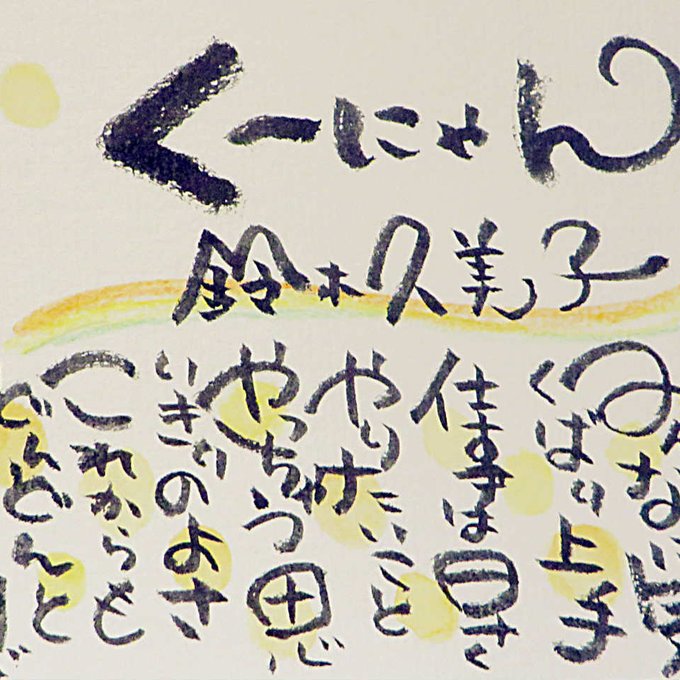 くーにゃん
鈴木久美子
みんなに
くばり上手
仕事は早く
やりたいこと
やっちゃう思
いきりのよさ
これからも
どんどんと